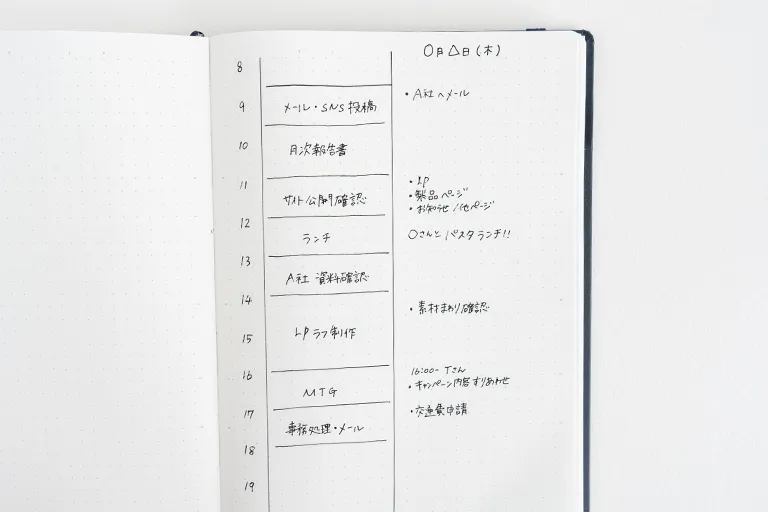 〇月△日(木)
8
9 メール・SNS投稿 ・A社へメール
10 月次報告書
11 サイト公開確認 ・LP
・製品ページ
・お知らせ/他ページ
12 ランチ 〇さんとパスタランチ!!
13 A社 資料確認
14 ・素材まわり確認
15 LPラフ制作
16 MTG 16:00- Tさん
・キャンペーン内容すりあわせ
17 事務処理・メール ・交通費申請
18
19